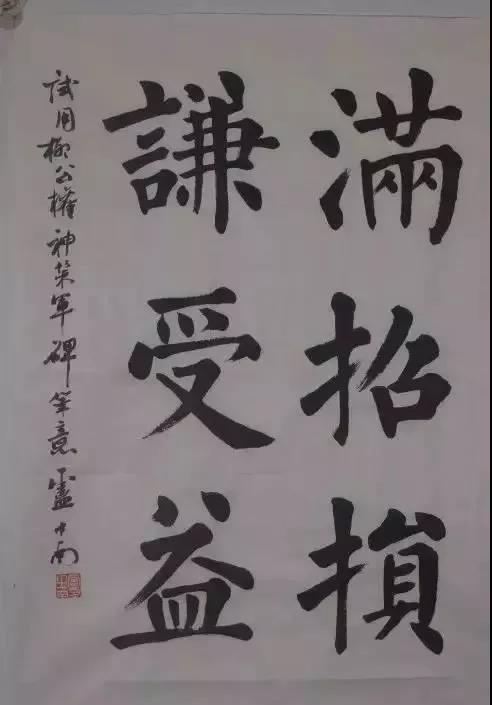 滿招損
謙受益
試用柳公權神策軍碑筆意盧中南